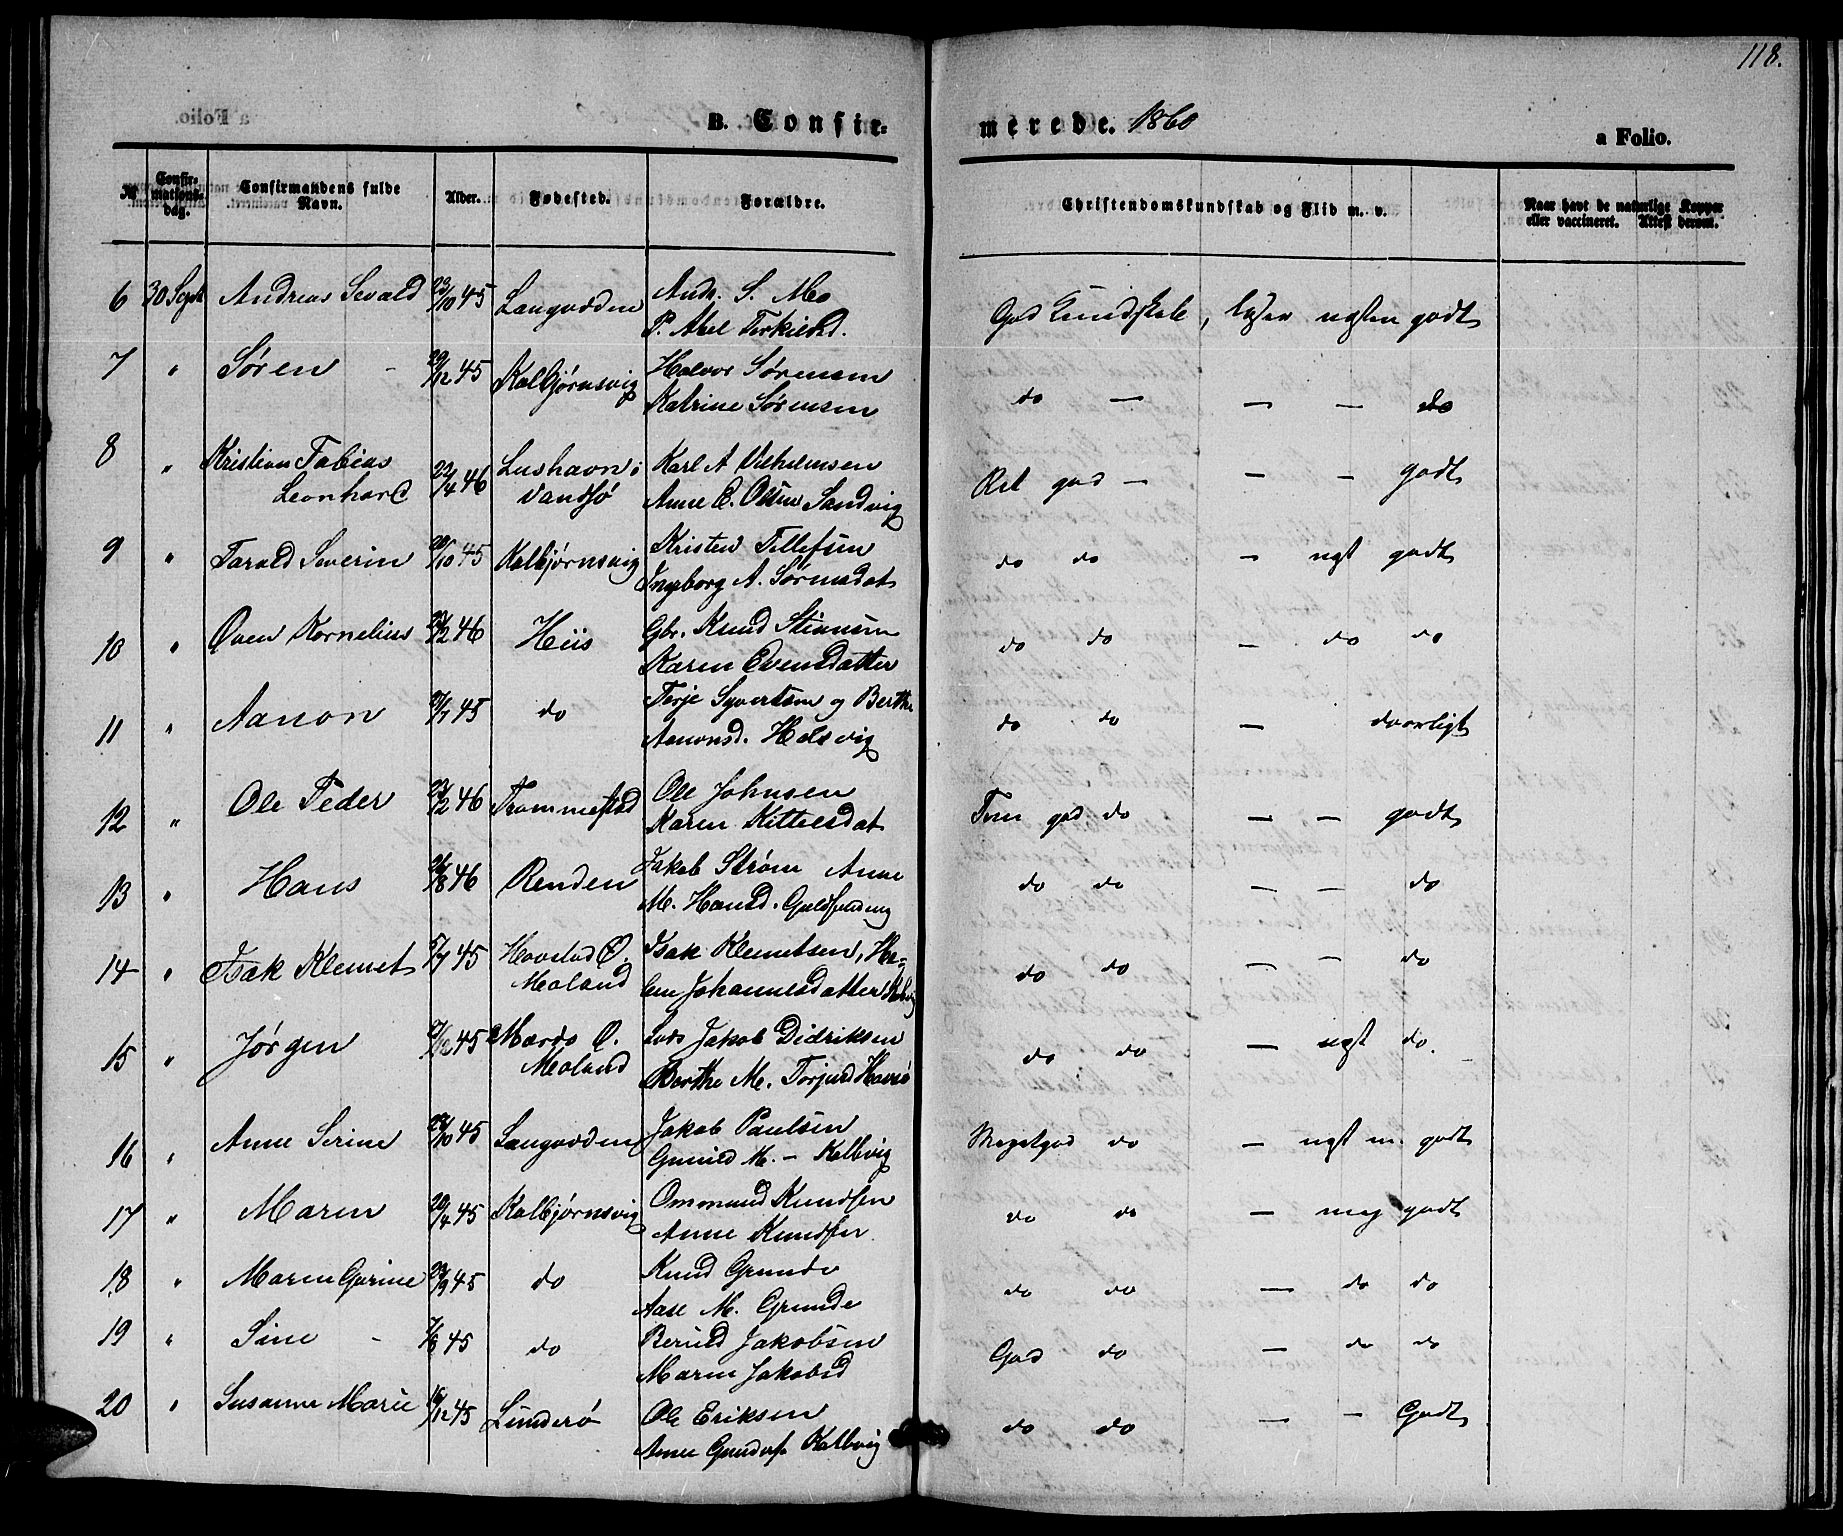 118.
B. Confir-
merede. 1860
a Folio.
№
Confir-
mations-
dag.
Confirmandens fulde
Navn.
Alder.
Fødested.
Forældre.
Christendomskundskab og Flid m. v.
Naar havt de naturlige Kopper
eller vaccineret. Attest derom.
6 30 Sept Andreas Sevald 23/10 45 Langodden Andr. S. Mo
P. Abel Terkields. God Kundskab, læser næsten godt
7 " Søren - 29/12 45 Kolbjørnsvig Halvor Sørensen
Katrine Sørensen do — — — do
8 " Kristian Tobias
Leonhard 22/4 46 Lushavn i
Vandsø Karl A Vilhelmsen
Anne C. Olsen Sandvig Ret god — — — godt
9 " Tarald Severin 20/10 45 Kolbjørnsvig Kristen Tellefsen
Ingeborg A. Sørensdat do do — ngst godt
10 " Oven Kornelius 28/2 46 Hiis Gbr. Knud Stiansen
Karen Ovensdatter do do — do do
11 " Aanon 7 45 do Terje Syvertsen og Berthe
Aanonsd. Holsvig do do — daarligt
12 " Ole Peder 23/2 46 Trommestad Ole Johnsen
Karen Kittelsdat Tem god do — — godt
13 " Hans 8 46 Renden Jakob Strøm Anne
M. Hansd. do do — — do
14 " Isak Klemet 5/7 45 Ø.
Moland Isak Klemetsen, He-
lene Johannesdatter do do — — do
15 " Jørgen 45 Mærdø Ø.
Moland Lars Jakob Didriksen
Berthe M. Torjusd Havsø do do — ngst do.
16 " Anne Serine 22/10 45 Langodden Jakob Paulsen
Gunild M. — Kolbvig Megetgod do — ngst m. godt
17 " Maren 20/4 45 Kolbjørnsvig Ommund Knudsen
Anne Knudsen. do do — meg godt
18 " Maren Gurine 23/9 45 do Knud Grunde
Aase M. Grunde do do — do do
19 " Sine - 7/8 45 do Berulf Jakobsen
Maren Jakobsd God do — do do
20 " Susanne Marie 16/12 45 Linderø Ole Eriksen
Anne Kolbvig do do — — Godt